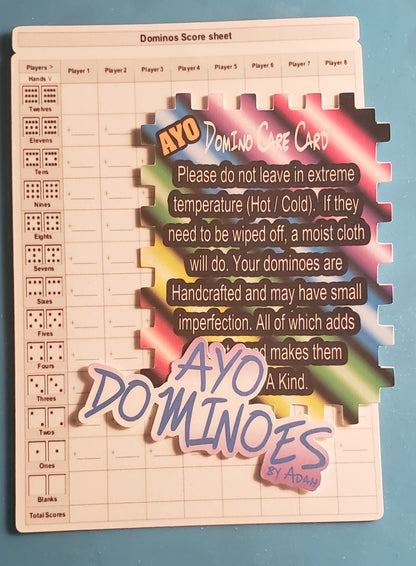 Dominos Score sheet
Players > Player 1 Player 2 Player 3 Player 4 Player 5 Player 6 Player 7 Player 8
Hands V
Twelves
Elevens
Tens
Nines
Eights
Sevens
Sixes
Fives
Fours
Threes
Twos
Ones
Blanks
Total Scores
AYO Domino Care Card
Please do not leave in extreme
temperature (Hot / Cold). If they
need to be wiped off, a moist cloth
will do. Your dominoes are
Handcrafted and may have small
imperfection. All of which adds
makes them
A Kind.
AYO
DOMINOES
BY ADAM